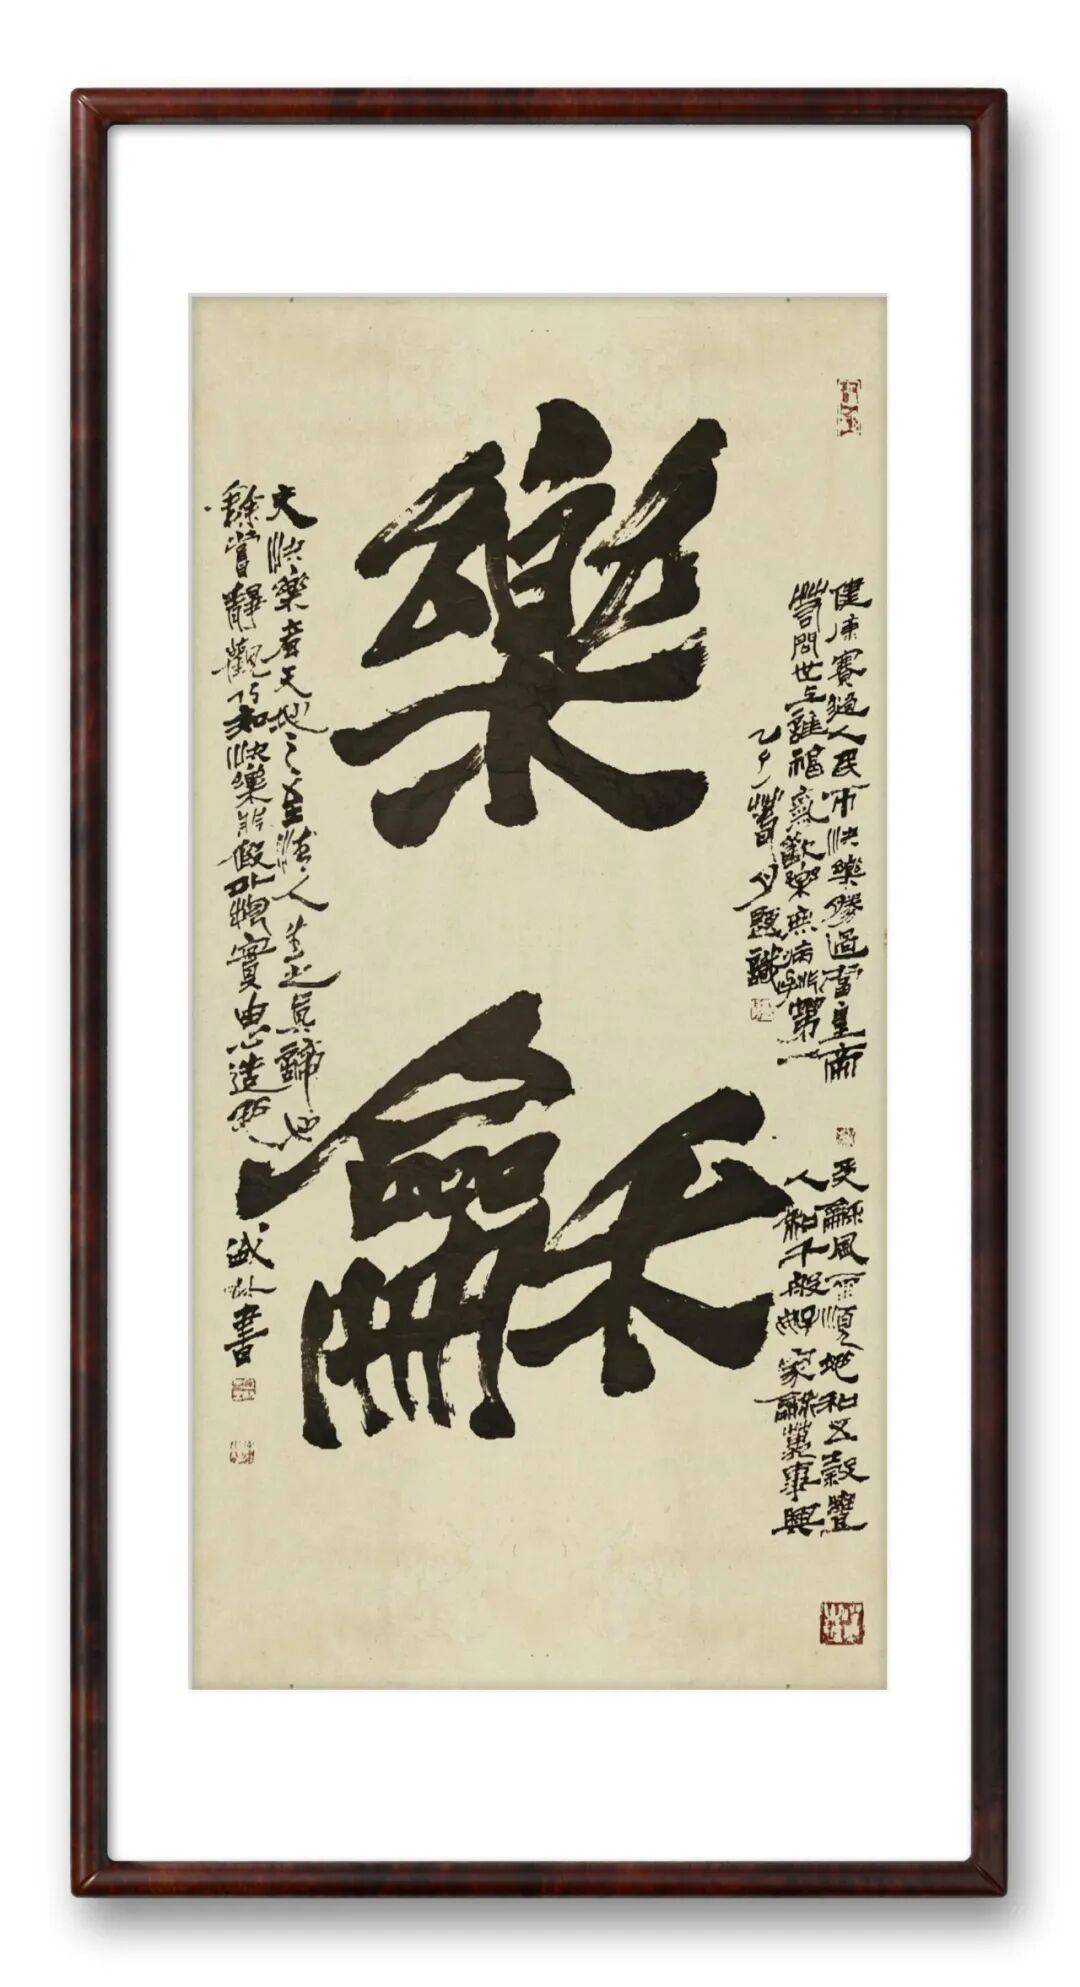 樂
龢
健康賽過人民币快樂勝過當皇帝
嘗問世上誰福氣歡樂無病排第一
乙巳 春月題識
天龢風雨順地和五穀豐
人和千般好家龢萬事興
夫快樂者天地之至情人生之真諦也
餘嘗靜觀乃知快樂非假外物實由心造
盛林書